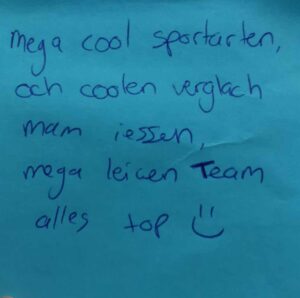 mega cool sportarten,
och coolen verglach
mam iessen,
mega leiwen Team
alles top